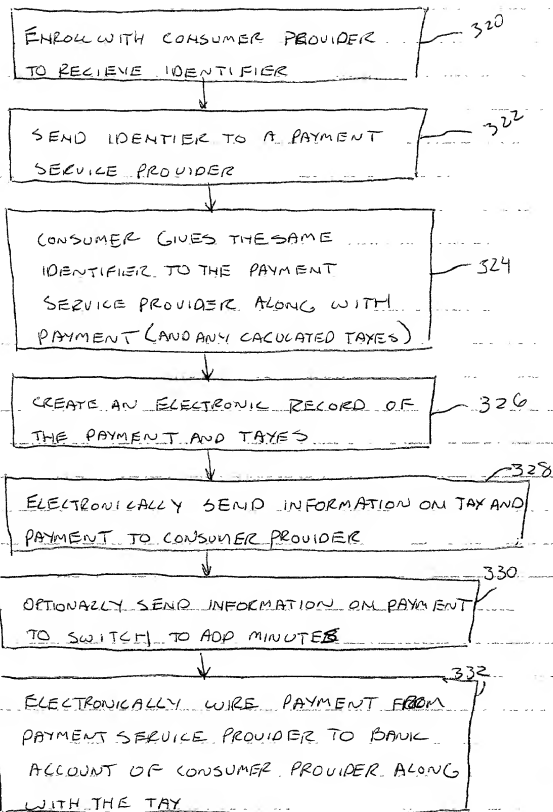 ENROLL WITH CONSUMER PROVIDER
320
TO RECIEVE IDENTIFIER
SEND IDENTIER TO A PAYMENT
322
SERVICE PROVIDER
CONSUMER GIVES THE SAME
IDENTIFIER TO THE PAYMENT
324
SERVICE PROVIDER ALONG WITH
PAYMENT (AND ANY CACULATED TAXES)
CREATE AN ELECTRONIC RECORD OF
326
THE PAYMENT AND TAXES
328
ELECTRONICALLY SEND INFORMATION ON TAX AND
PAYMENT TO CONSUMER PROVIDER
330
OPTIONALLY SEND INFORMATION ON PAYMENT
TO SWITCH TO ADD MINUTES
332
ELECTRONICALLY WIRE PAYMENT FROM
PAYMENT SERVICE PROVIDER TO BANK
ACCOUNT OF CONSUMER PROVIDER ALONG
WITH THE TAX